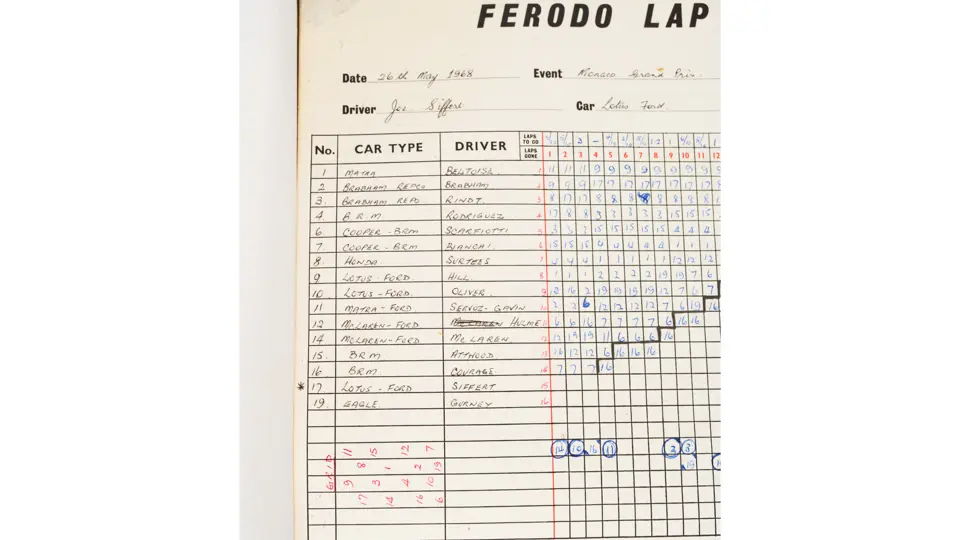 FERODO LAP
Date 26th May 1968 Event Monaco Grand Prix.
Driver Joe Siffert Car Lotus Ford.
No. CAR TYPE DRIVER LAPS TO DO
LAPS GONE 1 2 3 4 5 6 7 8 9 10 11 12
1 MATRA BELTOISE 1 11 11 11 9 9 9 9 9 9 9 9
2 BRABHAM REPCO BRABHAM 2 9 9 9 17 17 17 17 17 17 17 17
3. BRABHAM REPCO RINDT. 3 8 17 17 8 8 8 8
4. B.R.M RODRIGUEZ 4 17 8 8 3 3 3 3 3 15 15 15
6. COOPER-BRM SCARFIOTTI 5 3 3 3 15 15 15 15 15 4 4 4
7. COOPER-BRM BIANCHI. 6 15 15 15 4 4 4 4 4 1 1 1
8. HONDA SURTEES 7 4 4 4 1 1 1 1 1 12 12 12
9 LOTUS-FORD HILL. 8 1 1 1 2 2 2 2 19 19 7 6
10. LOTUS-FORD. OLIVER. 2 19 19 19 19 12 7 6 7
11 MATRA-FORD SERVOZ-GAVIN 2 2 6 12 12 12 12 7 6 19 16
12 McLAREN-FORD HULME 11 6 6 16 7 7 7 7 6 16 16
14 McLAREN-FORD McLAREN. 12 12 19 19 11 6 6 6 16
15. BRM ATTWOOD. 13 16 12 12 6 16 16 16
16 BRM. COURAGE. 7 7 7 16
* 17 LOTUS-FORD SIFFERT 15
19. EAGLE. GURNEY 16
GRID
11 15 12 7
8 1 2 19
9 3 4 10
17 14 16 6
10 16 11 2 8
19